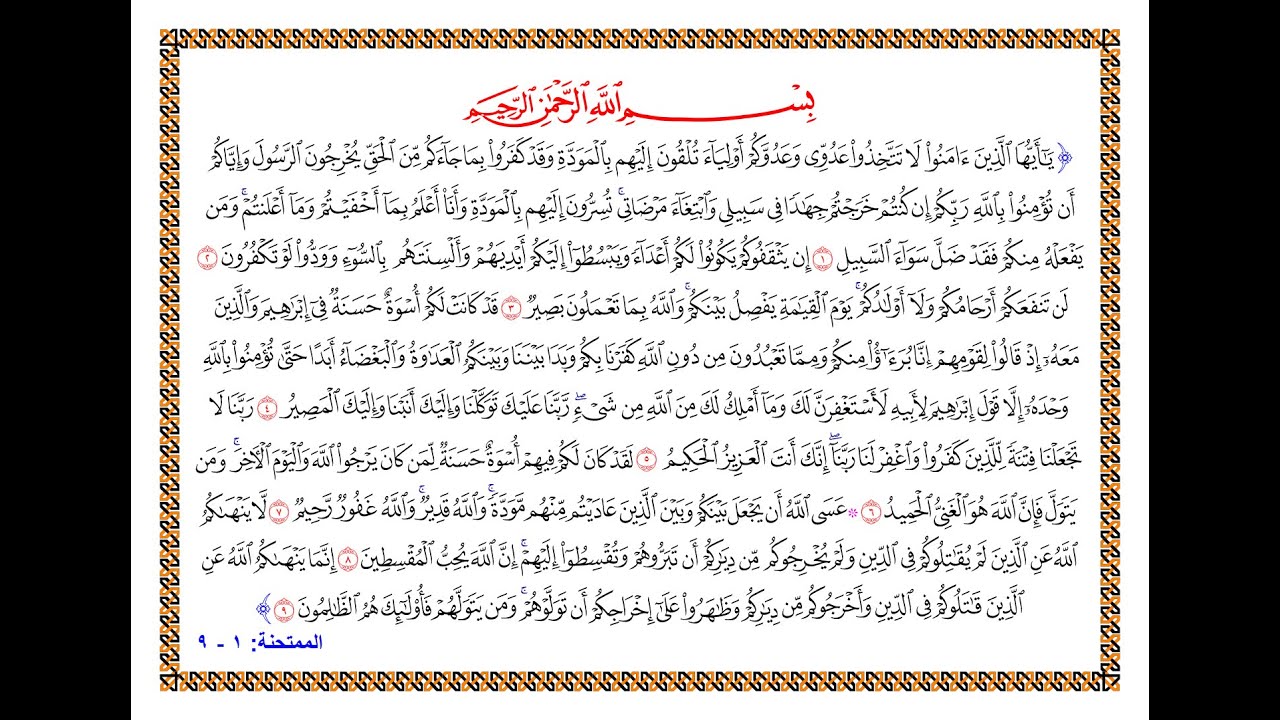 بِسْمِ ٱللَّهِ ٱلرَّحْمَٰنِ ٱلرَّحِيمِ
﴿ يَٰٓأَيُّهَا ٱلَّذِينَ ءَامَنُوا۟ لَا تَتَّخِذُوا۟ عَدُوِّى وَعَدُوَّكُمْ أَوْلِيَآءَ تُلْقُونَ إِلَيْهِم بِٱلْمَوَدَّةِ وَقَدْ كَفَرُوا۟ بِمَا جَآءَكُم مِّنَ ٱلْحَقِّ يُخْرِجُونَ ٱلرَّسُولَ وَإِيَّاكُمْ
أَن تُؤْمِنُوا۟ بِٱللَّهِ رَبِّكُمْ إِن كُنتُمْ خَرَجْتُمْ جِهَٰدًا فِى سَبِيلِى وَٱبْتِغَآءَ مَرْضَاتِى ۚ تُسِرُّونَ إِلَيْهِم بِٱلْمَوَدَّةِ وَأَنَا۠ أَعْلَمُ بِمَآ أَخْفَيْتُمْ وَمَآ أَعْلَنتُمْ ۚ وَمَن
يَفْعَلْهُ مِنكُمْ فَقَدْ ضَلَّ سَوَآءَ ٱلسَّبِيلِ ١ إِن يَثْقَفُوكُمْ يَكُونُوا۟ لَكُمْ أَعْدَآءً وَيَبْسُطُوٓا۟ إِلَيْكُمْ أَيْدِيَهُمْ وَأَلْسِنَتَهُم بِٱلسُّوٓءِ وَوَدُّوا۟ لَوْ تَكْفُرُونَ ٢
لَن تَنفَعَكُمْ أَرْحَامُكُمْ وَلَآ أَوْلَٰدُكُمْ ۚ يَوْمَ ٱلْقِيَٰمَةِ يَفْصِلُ بَيْنَكُمْ ۚ وَٱللَّهُ بِمَا تَعْمَلُونَ بَصِيرٌ ٣ قَدْ كَانَتْ لَكُمْ أُسْوَةٌ حَسَنَةٌ فِىٓ إِبْرَٰهِيمَ وَٱلَّذِينَ
مَعَهُۥٓ إِذْ قَالُوا۟ لِقَوْمِهِمْ إِنَّا بُرَءَٰٓؤُا۟ مِنكُمْ وَمِمَّا تَعْبُدُونَ مِن دُونِ ٱللَّهِ كَفَرْنَا بِكُمْ وَبَدَا بَيْنَنَا وَبَيْنَكُمُ ٱلْعَدَٰوَةُ وَٱلْبَغْضَآءُ أَبَدًا حَتَّىٰ تُؤْمِنُوا۟ بِٱللَّهِ
وَحْدَهُۥٓ إِلَّا قَوْلَ إِبْرَٰهِيمَ لِأَبِيهِ لَأَسْتَغْفِرَنَّ لَكَ وَمَآ أَمْلِكُ لَكَ مِنَ ٱللَّهِ مِن شَىْءٍ ۖ رَّبَّنَا عَلَيْكَ تَوَكَّلْنَا وَإِلَيْكَ أَنَبْنَا وَإِلَيْكَ ٱلْمَصِيرُ ٤ رَبَّنَا لَا
تَجْعَلْنَا فِتْنَةً لِّلَّذِينَ كَفَرُوا۟ وَٱغْفِرْ لَنَا رَبَّنَآ ۖ إِنَّكَ أَنتَ ٱلْعَزِيزُ ٱلْحَكِيمُ ٥ لَقَدْ كَانَ لَكُمْ فِيهِمْ أُسْوَةٌ حَسَنَةٌ لِّمَن كَانَ يَرْجُوا۟ ٱللَّهَ وَٱلْيَوْمَ ٱلْءَاخِرَ ۚ وَمَن
يَتَوَلَّ فَإِنَّ ٱللَّهَ هُوَ ٱلْغَنِىُّ ٱلْحَمِيدُ ٦ * عَسَى ٱللَّهُ أَن يَجْعَلَ بَيْنَكُمْ وَبَيْنَ ٱلَّذِينَ عَادَيْتُم مِّنْهُم مَّوَدَّةً ۚ وَٱللَّهُ قَدِيرٌ ۚ وَٱللَّهُ غَفُورٌ رَّحِيمٌ ٧ لَّا يَنْهَىٰكُمُ
ٱللَّهُ عَنِ ٱلَّذِينَ لَمْ يُقَٰتِلُوكُمْ فِى ٱلدِّينِ وَلَمْ يُخْرِجُوكُم مِّن دِيَٰرِكُمْ أَن تَبَرُّوهُمْ وَتُقْسِطُوٓا۟ إِلَيْهِمْ ۚ إِنَّ ٱللَّهَ يُحِبُّ ٱلْمُقْسِطِينَ ٨ إِنَّمَا يَنْهَىٰكُمُ ٱللَّهُ عَنِ
ٱلَّذِينَ قَٰتَلُوكُمْ فِى ٱلدِّينِ وَأَخْرَجُوكُم مِّن دِيَٰرِكُمْ وَظَٰهَرُوا۟ عَلَىٰٓ إِخْرَاجِكُمْ أَن تَوَلَّوْهُمْ ۚ وَمَن يَتَوَلَّهُمْ فَأُو۟لَٰٓئِكَ هُمُ ٱلظَّٰلِمُونَ ٩ ﴾
الممتحنة: ١ - ٩